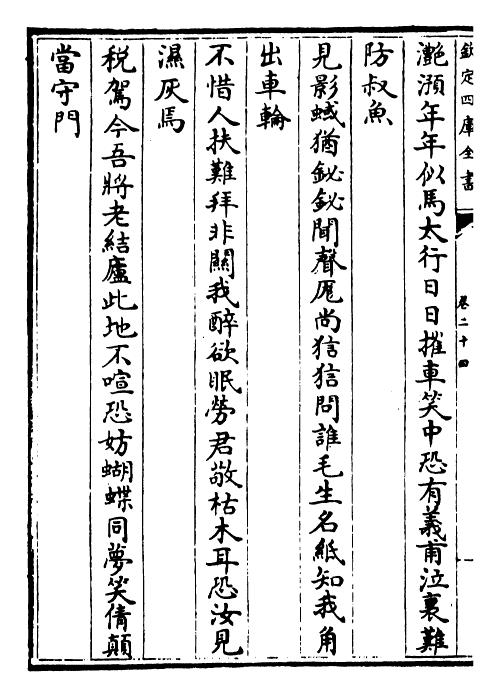 欽定四庫全書
卷二十四
灔澦年年似馬太行日日摧車笑中恐有義甫泣裏難
防叔魚
見影蜮猶鉍鉍聞聲厖尚狺狺問誰毛生名紙知我角
出車輪
不惜人扶難拜非關我醉欲眠勞君敬枯木耳恐汝見
濕灰焉
稅駕今吾將老結廬此地不喧恐妨蝴蝶同夢笑倩顛
當守門